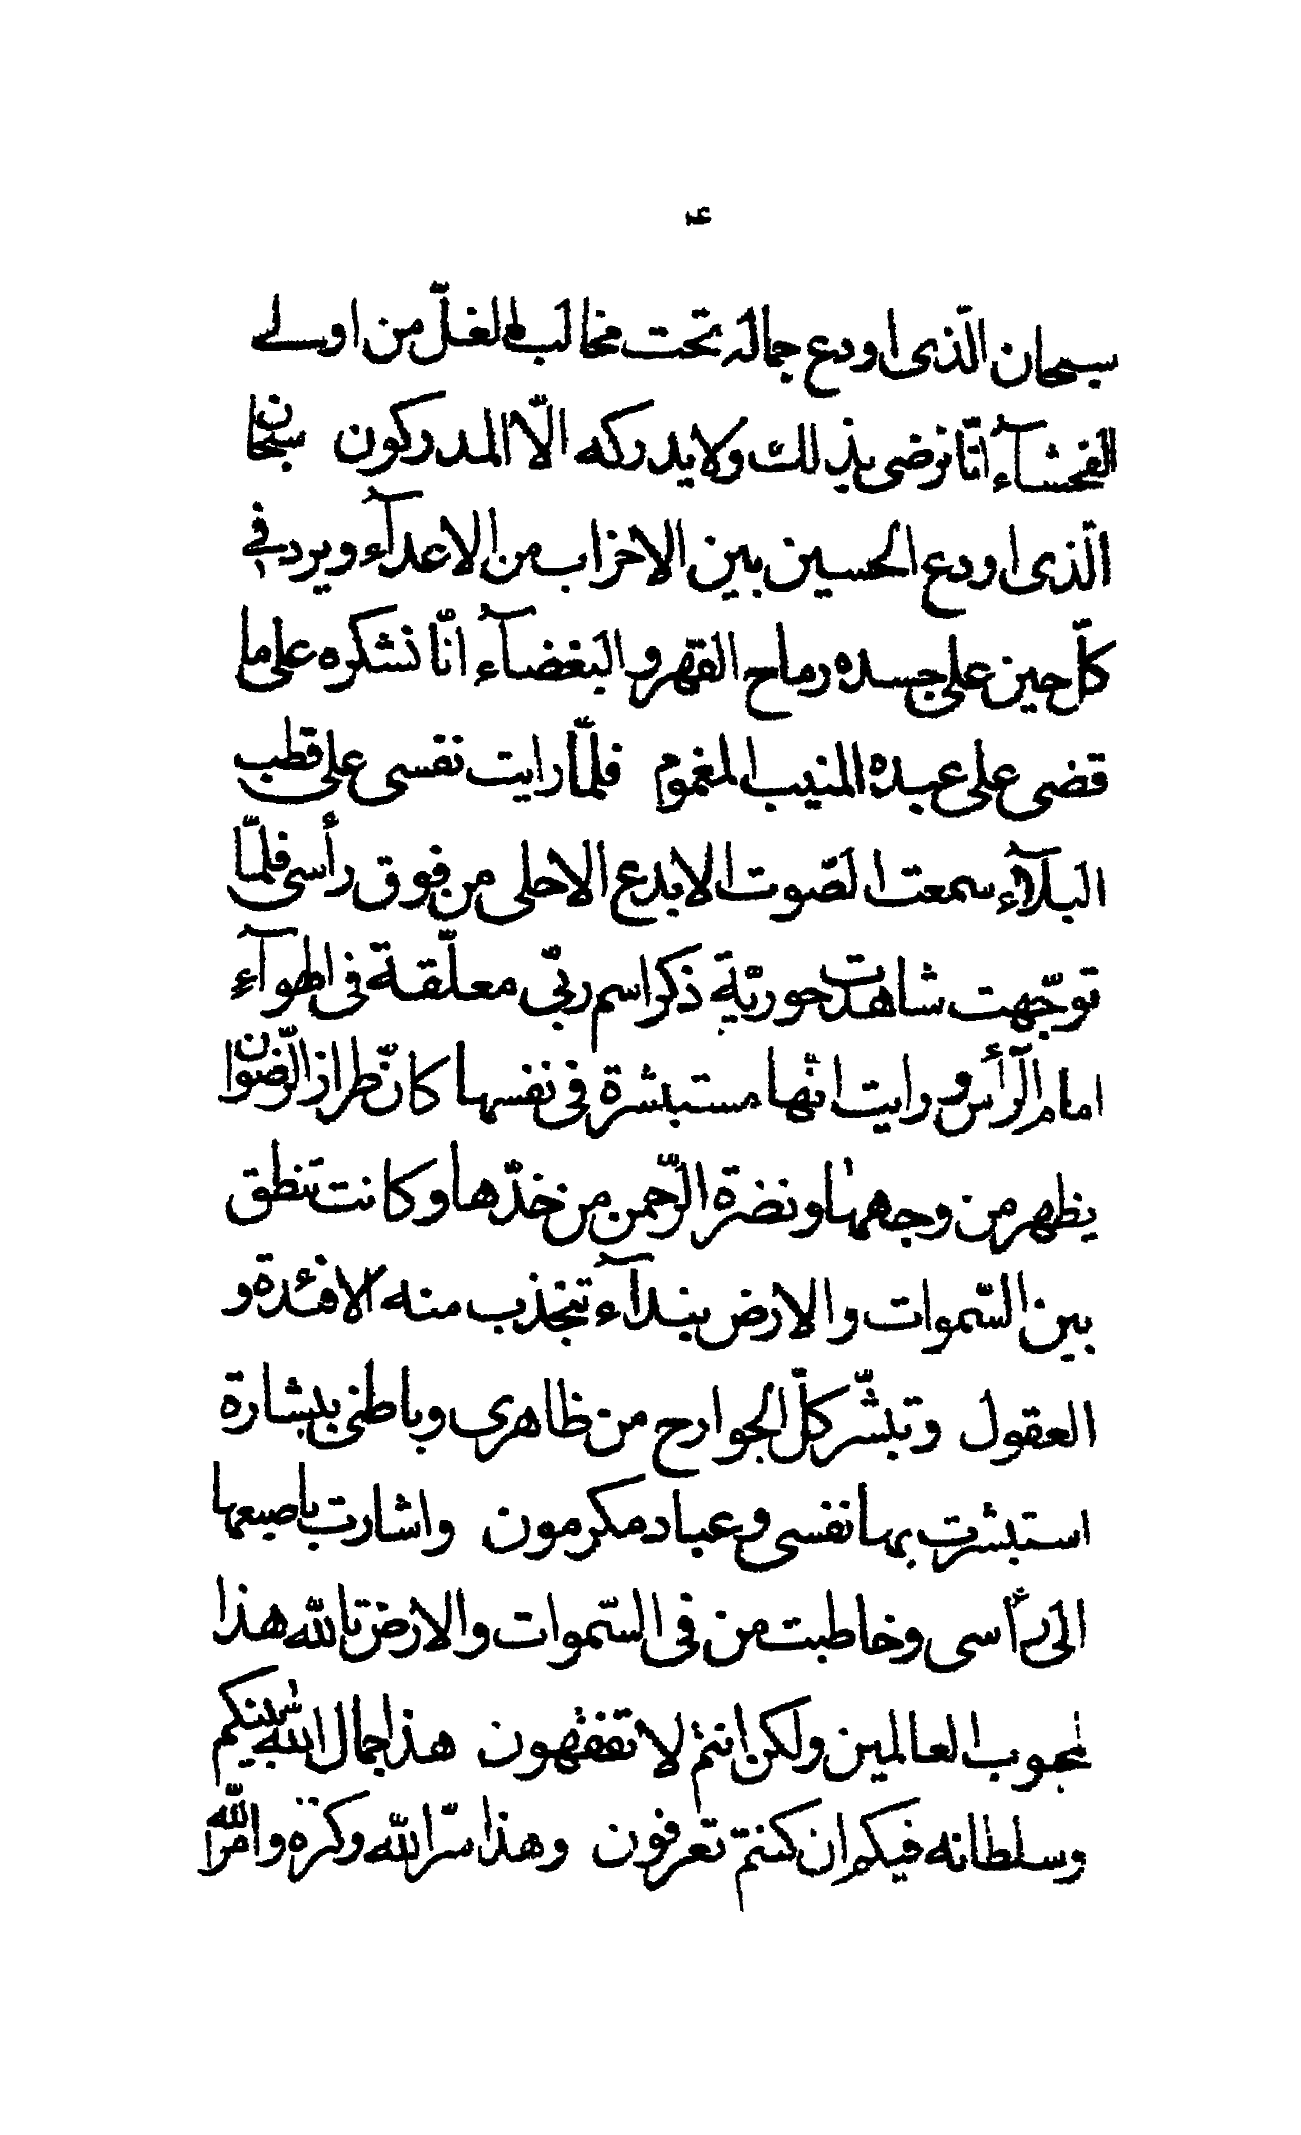 ۴
سبحان الّذی اودع جماله تحت مخالب الغلّ من اولے
الفحشآء انّا نرضی بذلك ولا یدركه الّا المدركون سبحان
الّذی اودع الحسین بین الاحزاب من الاعدآء و یرد فی
كلّ حین علی جسده رماح القهر و البغضآء انّا نشكره علی ما
قضی علی عبده المنیب المغموم فلمّا رایت نفسی علی قطب
البلآء سمعت الصّوت الابدع الاحلی من فوق رأسی فلمّا
توجّهت شاهدت حوریّة ذكر اسم ربّی معلّقة فی الهوآء
امام الرّأس و رایت انّها مستبشرة فی نفسها كانّ طراز الرّضوان
یظهر من وجهها و نضرة الرّحمن من خدّها و كانت تنطق
بین السّموات والارض بندآء تنجذب منه الافئدة و
العقول و تبشّر كلّ الجوارح من ظاهری و باطنی ببشارة
استبشرت بها نفسی و عباد مكرمون و اشارت باصبعها
الی رأسی و خاطبت من فی السّموات والارض تالله هذا
لمحبوب العالمین ولكن انتم لا تفقهون هذا جمال الله بینكم
و سلطانه فیكم ان كنتم تعرفون و هذا سرّ الله و كنزه و امر الله